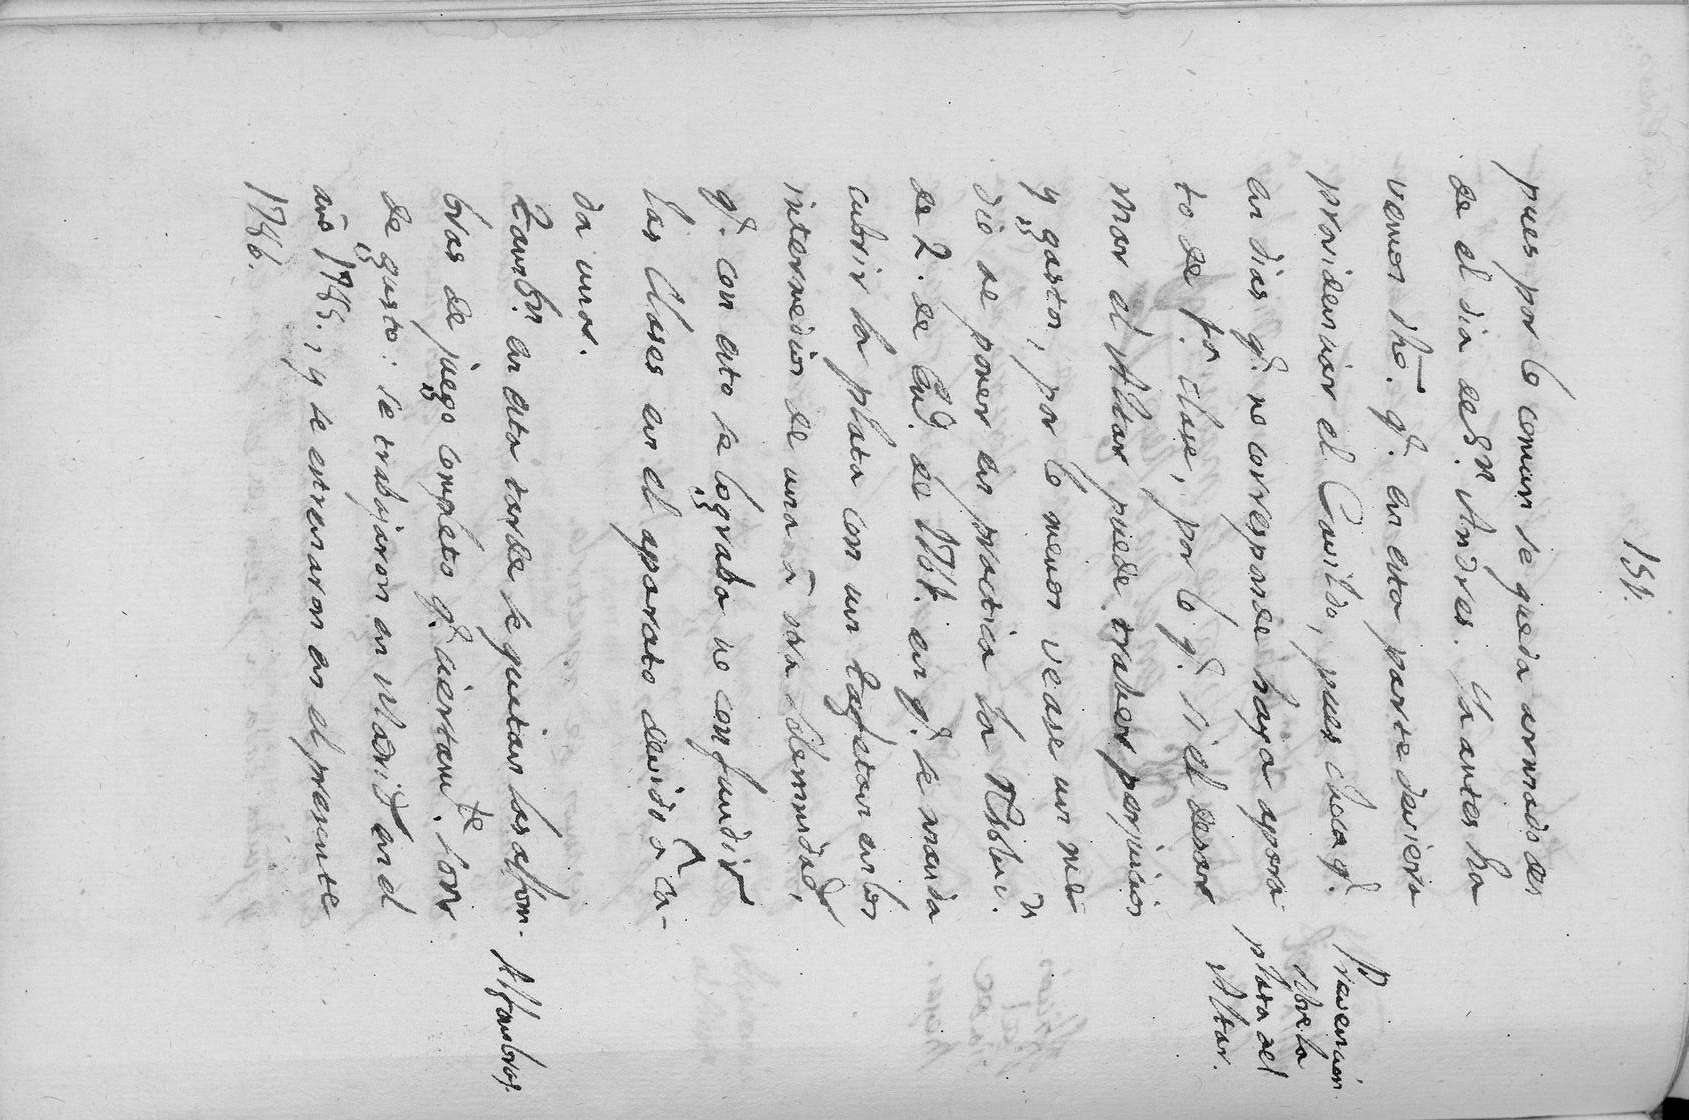 151.
pues por lo comun se queda armado des
de el dia de Sn. Andres. Ya antes ha
vemos dho. qe. en esta parte deviera
providenciar el Cavildo, pues cheà qe.
en dias qe. no corresponde haya apara-
to de pra. clase, por lo qe. si el desar
mar el Altar puede traher perjuicios
y gastos, por lo menos vease un me
dio de poner en practica la Resluc.n
de 2. de En.o de 1764. en qe. se manda
cubrir la plata con un tafetan en los
intermedios de una à otra solemnidad,
qe. con esto se lograba no confundir
las clases en el aparato devido à ca-
da una.
Tambn. en esta tarde se quitan las alfom-
bras de juego completo qe. ciertamte. son
de gusto: se trabajaron en Madrid en el
año 1785., y se estrenaron en el presente
1786.
Prevencion
sobre la
plata del
Altar.
Alfombras.